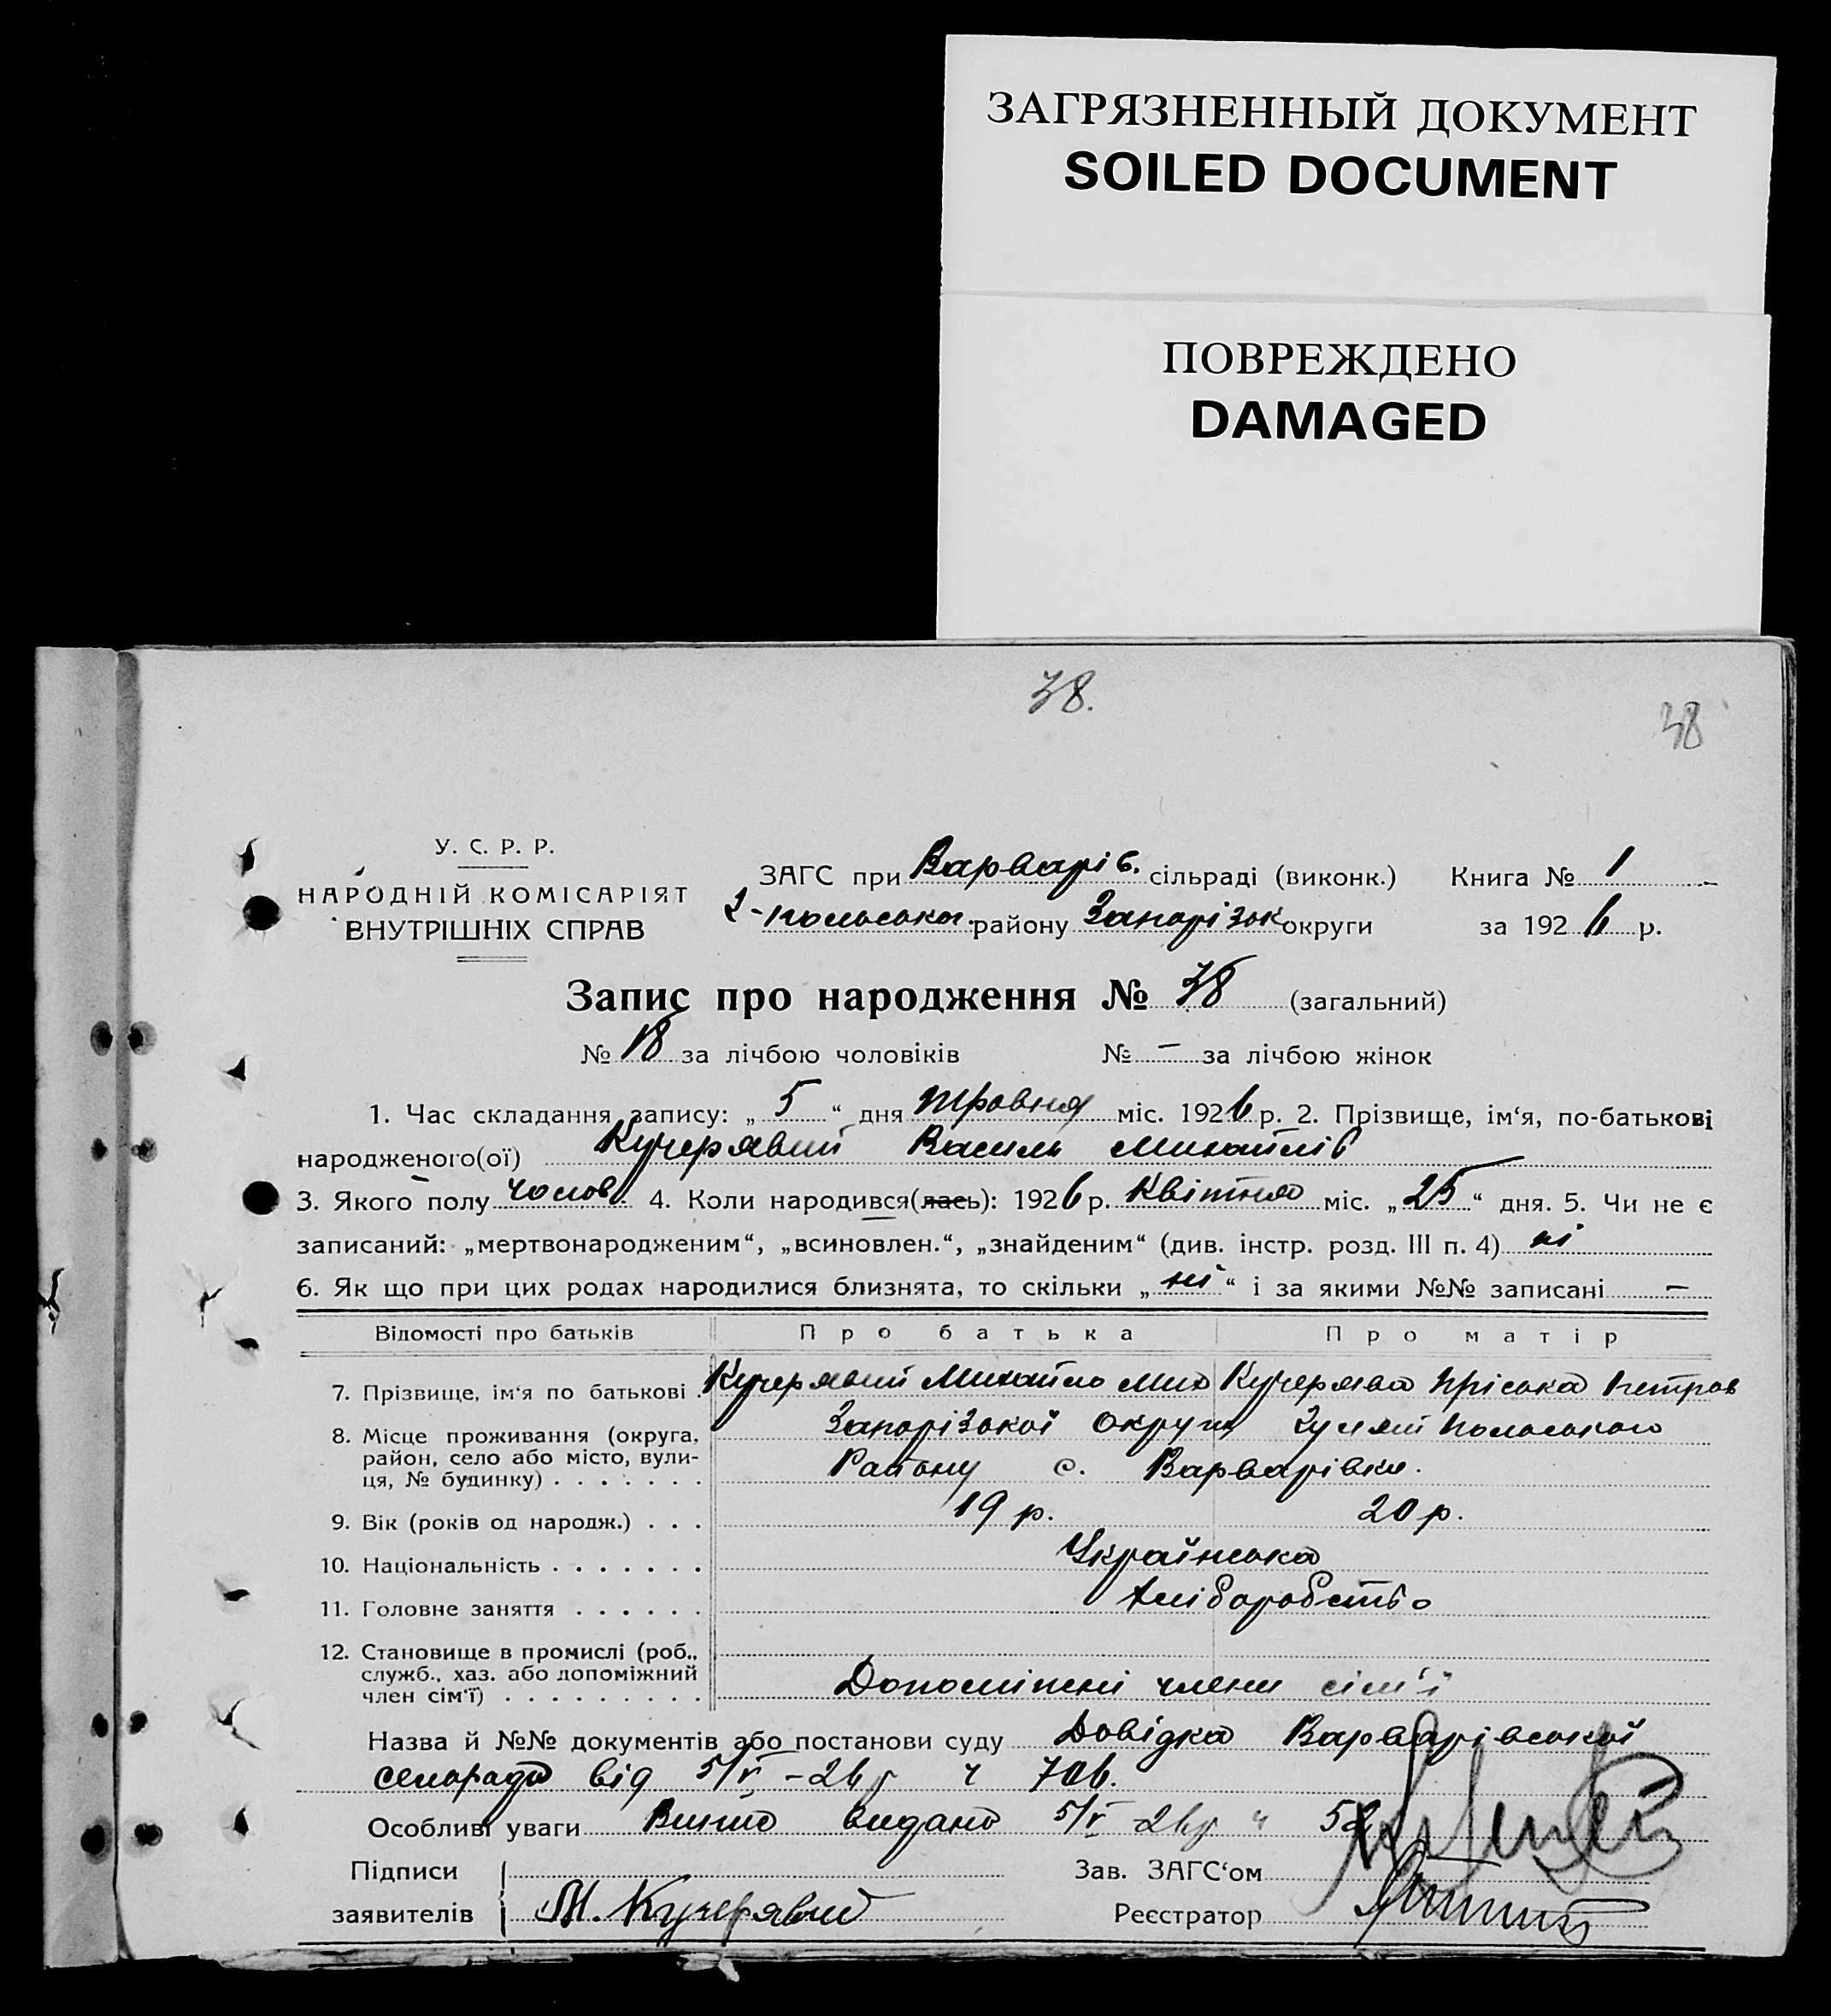 ЗАГРЯЗНЕННЫЙ ДОКУМЕНТ
SOILED DOCUMENT
ПОВРЕЖДЕНО
DAMAGED
38.
38
У. С. Р. Р.
НАРОДНІЙ КОМІСАРІЯТ
ВНУТРІШНІХ СПРАВ
ЗАГС при Варварів. сільраді (виконк.) Книга № 1
Г-Польськ. району Запорізьк округи за 1926 р.
Запис про народження № 38 (загальний)
№ 18 за лічбою чоловіків № – за лічбою жінок
1. Час складання запису: „5“ дня травня міс. 1926 р. 2. Прізвище, ім‘я, по-батькові
народженого(ої) Кучерявий Василь Михайлів
3. Якого полу чолов. 4. Коли народився(лась): 1926 р. Квітня міс. „25“ дня. 5. Чи не є
записаний: „мертвонародженим“, „всиновлен.“, „знайденим“ (див. інстр. розд. III п. 4) ні
6. Як що при цих родах народилися близнята, то скільки „ні“ і за якими №№ записані –
Відомості про батьків Про батька Про матір
7. Прізвище, ім‘я по батькові . Кучерявий Михайло Мих Кучерява Пріська Петров
8. Місце проживання (округа, район, село або місто, вулиця, № будинку) . . . . . . . Запорізької округи Гуляй Польського
Району с. Варварівка.
9. Вік (років од народж.) . . . 19 р. 20 р.
10. Національність . . . . . . . Українська
11. Головне заняття . . . . . . Хліборобство
12. Становище в промислі (роб., служб., хаз. або допоміжний член сім‘ї) . . . . . . . . . Допоміжні члени сім'ї
Назва й №№ документів або постанови суду Довідка Варварівської
сельради від 5/V-26 р ч 706.
Особливі уваги Витяг видано 5/V-26р ч 52
Підписи
заявителів М. Кучерявий
Зав. ЗАГС‘ом
Реєстратор